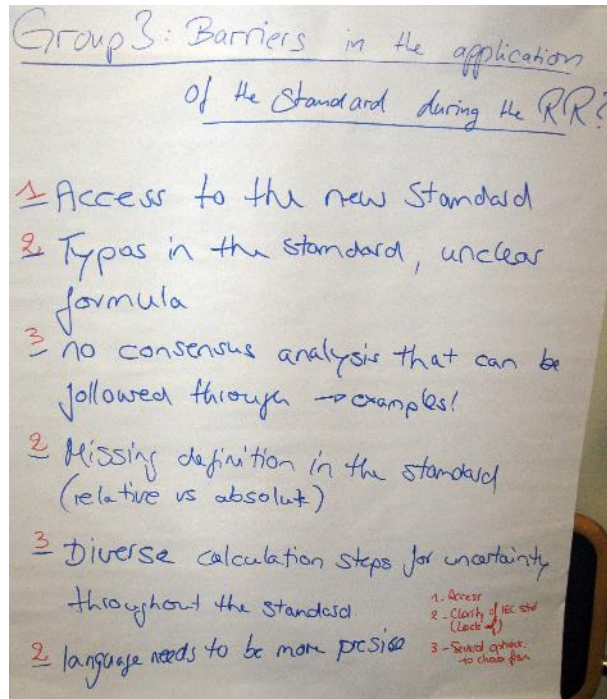 Group 3: Barriers in the application
of the Standard during the RR?
1 Access to the new Standard
2 Typos in the standard, unclear
formula
3 no consensus analysis that can be
followed through → examples!
2 Missing definition in the standard
(relative vs absolut)
3 Diverse calculation steps for uncertainty
throughout the standard
2 language needs to be more presise
1. Access
2 - Clarity of IEC std
(Lack of)
3 - Several options
to choose from